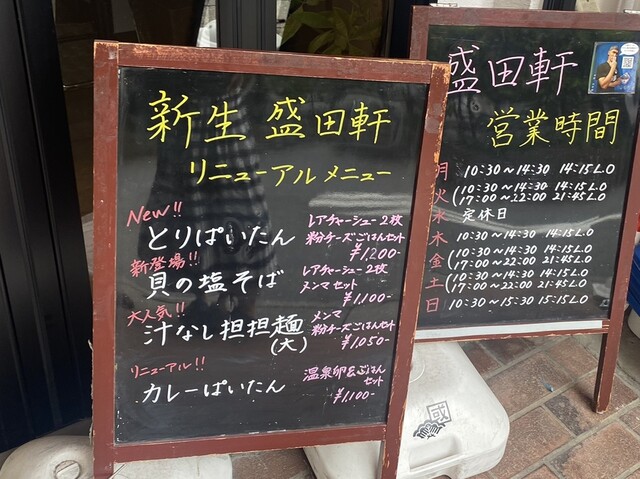 新生 盛田軒
リニューアルメニュー
New!!
とりぱいたん
レアチャーシュー2枚
粉チーズごはんセット
¥1,200-
新登場!!
貝の塩そば
レアチャーシュー2枚
メンマセット
¥1,100-
大人気!!
汁なし担担麺
(大)
メンマ
粉チーズごはんセット
¥1,050-
リニューアル!!
カレーぱいたん
温泉卵&ごはん
セット
¥1,100-
盛田軒
営業時間
月 10:30~14:30 14:15L.O
火 (10:30~14:30 14:15L.O
17:00~22:00 21:45L.O
水 定休日
木 10:30~14:30 14:15L.O
金 (10:30~14:30 14:15L.O
17:00~22:00 21:45L.O
土 (10:30~14:30 14:15L.O
17:00~22:00 21:45L.O
日 10:30~15:30 15:15L.O